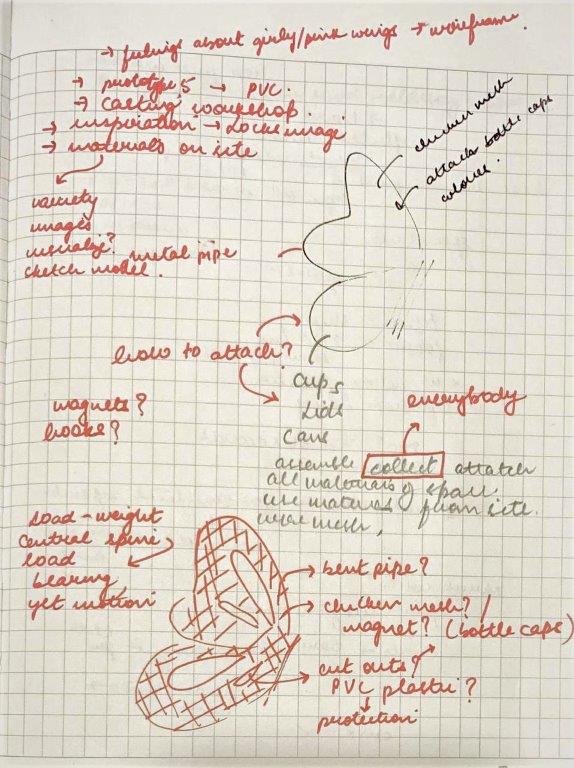 → feelings about girly/pink wings → wireframe.
→ prototypes → PVC.
→ casting workshop.
→ inspiration → Locke image
→ materials on site
variety
images
visualize?
sketch model.
metal pipe
chicken mesh
attach bottle caps
colours.
how to attach?
magnets?
hooks?
cups
lids
cans
everybody
assemble collect attatch
all materials of space.
use materials from site.
wire mesh,
load-weight
central spine
load
bearing
yet motion
→ bent pipe?
→ chicken mesh? /
magnet? (bottle caps)
→ cut outs?
PVC plastic?
protection